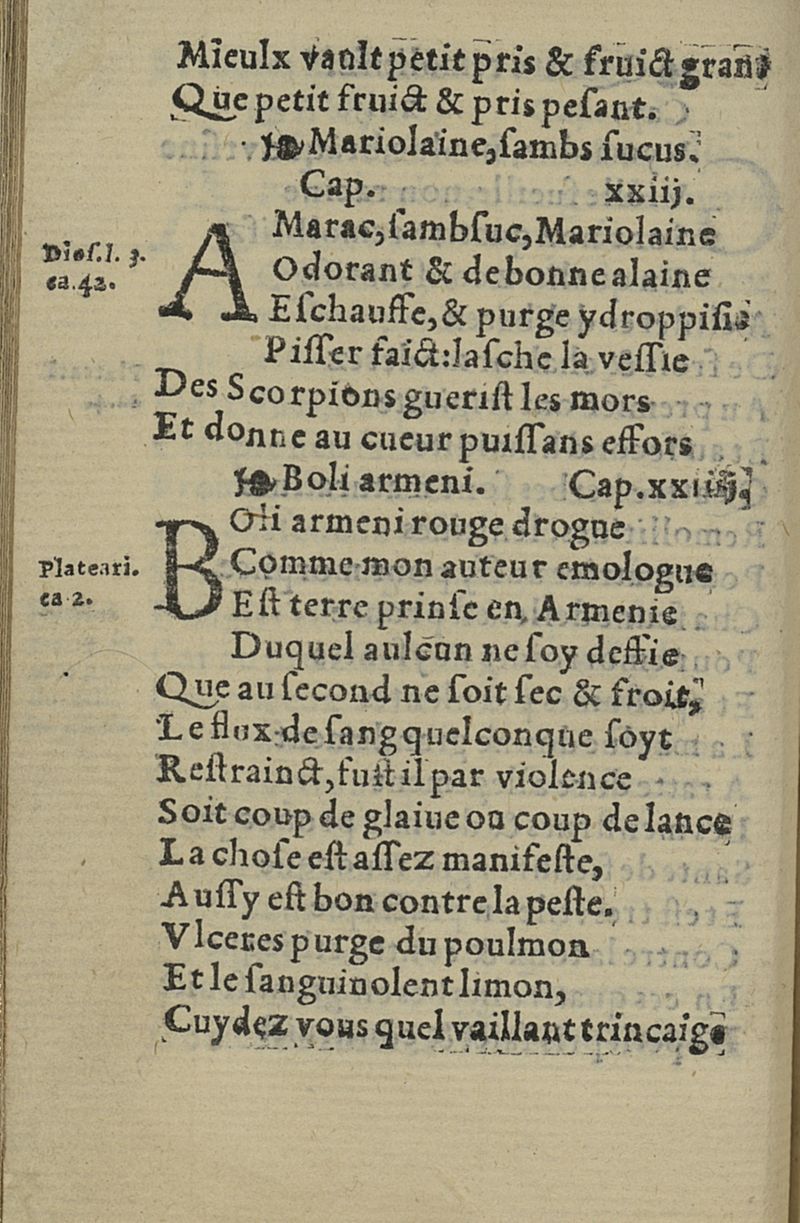 Mieulx vault petit pris & fruict grant
Que petit fruict & pris pesant.
Mariolaine, sambs sucus.
Cap. xxiij.
AMarac, sambsuc, Mariolaine
Dios. l. 3.
ca. 42.
Odorant & de bonne alaine
Eschauffe, & purge ydroppisie
Pisser faict: lasche la vessie
Des Scorpions guerist les mors
Et donne au cueur puissans effors
Boli armeni. Cap. xxiiij.
BOli armeni rouge drogue
Plateari.
ca 2.
Comme mon auteur emologue
Est terre prinse en Armenie
Duquel aulcun ne soy deffie
Que au second ne soit sec & froit,
Le flux de sang quelconque soyt
Restrainct, fust il par violence
Soit coup de glaiue ou coup de lance
La chose est assez manifeste,
Aussy est bon contre la peste.
Vlceres purge du poulmon
Et le sanguinolent limon,
Cuydez vous quel vaillant trincaige